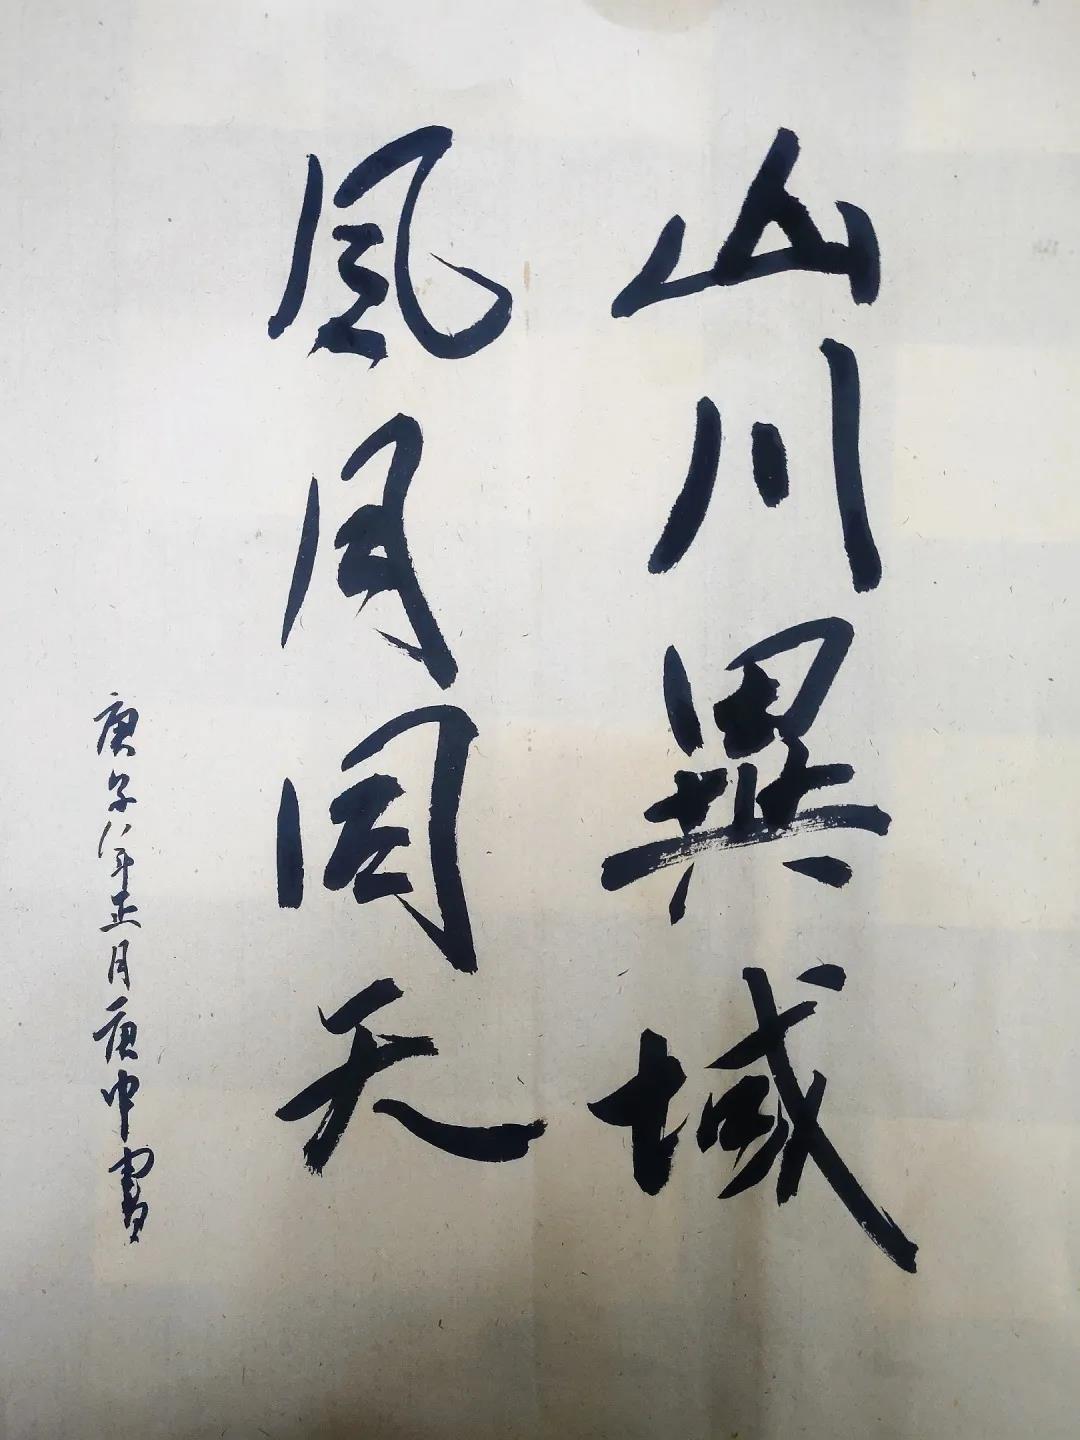 山川異域
風月同天
庚子年正月庚申書